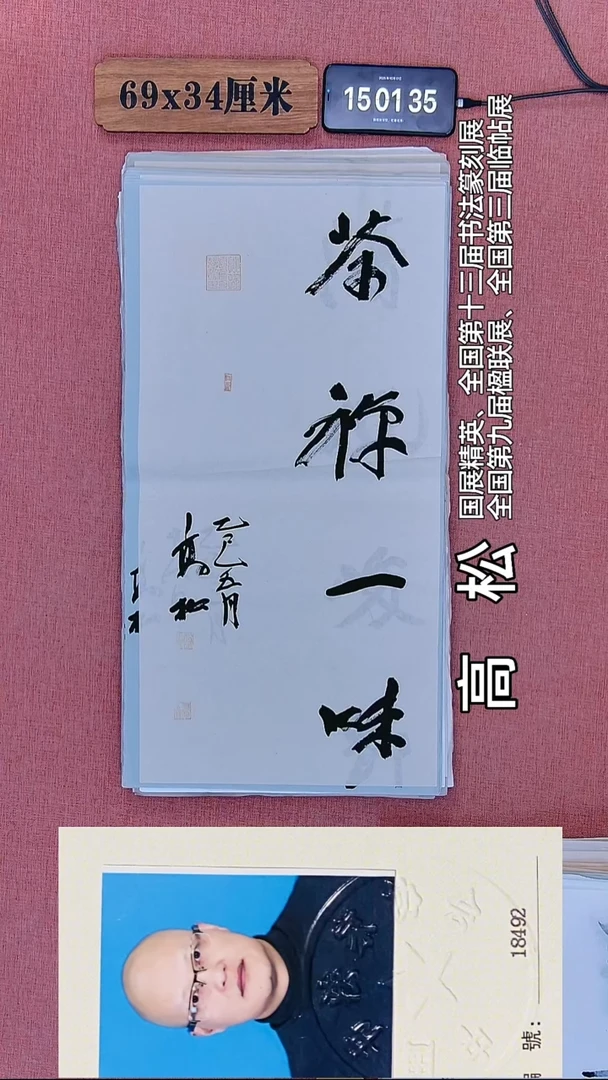 69x34厘米
15 01 35
茶禅一味
乙巳五月
高松
国展精英、全国第十三届书法篆刻展
全国第九届楹联展、全国第三届临帖展
高 松
18492
號: